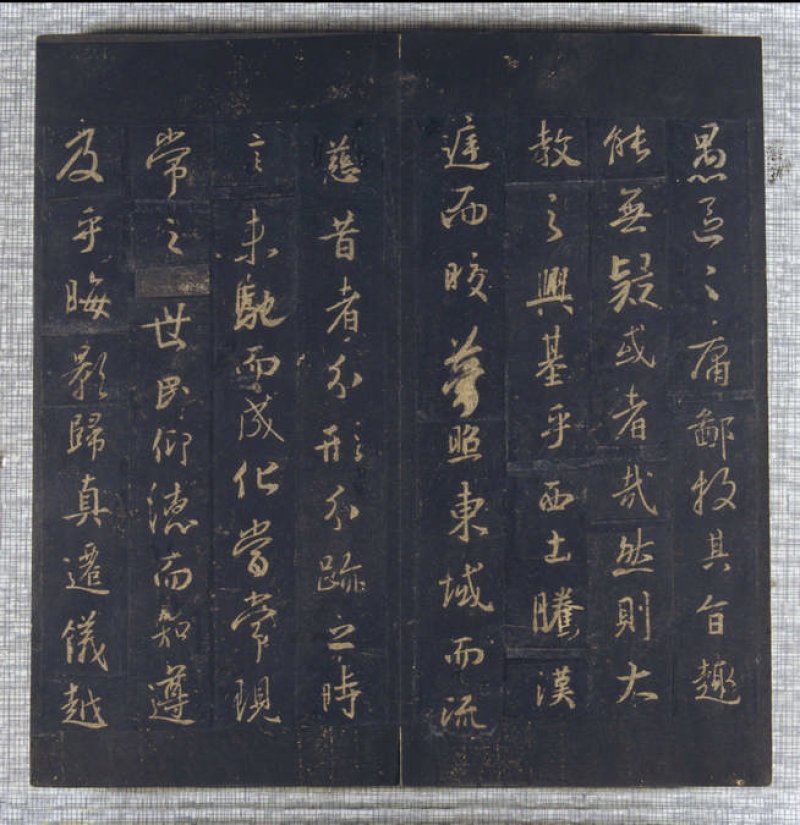 愚區〻庸鄙投其旨趣
能無疑或者哉然則大
教之興基乎西土騰漢
庭而皎夢照東域而流
慈昔者分形分跡之時
言未馳而成化當常現
常之世民仰德而知遵
及乎晦影歸真遷儀越